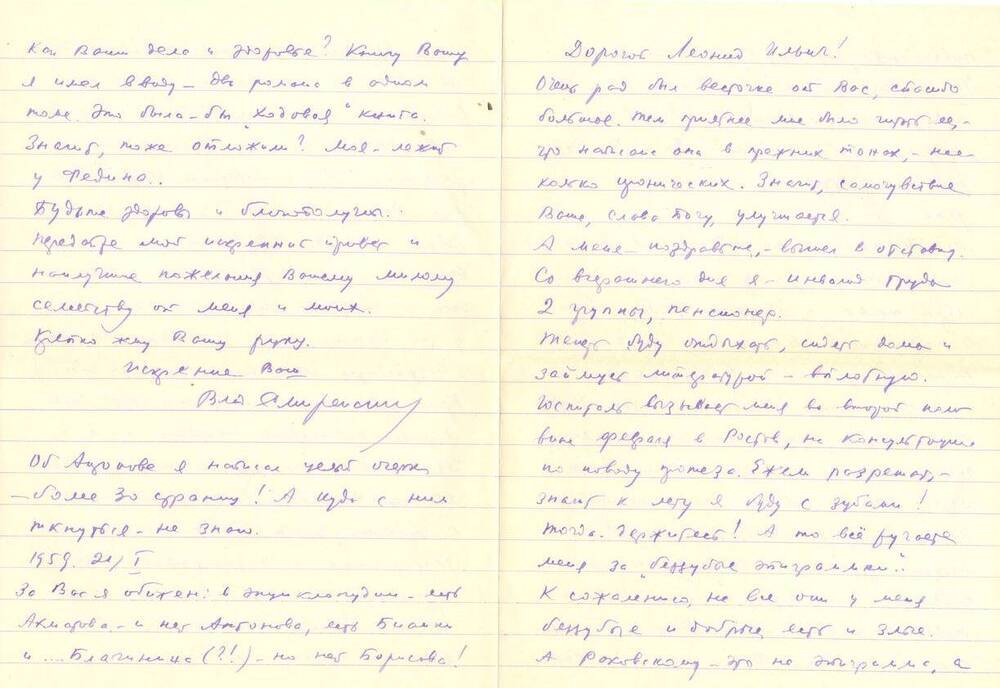 Как Ваши дела и здоровье? Книгу Вашу
я имел ввиду – два романа в одном
томе. Это была-бы "ходовая" книга.
Значит, тоже отложили? Моя – лежит
у Федина..
Будьте здоровы и благополучны.
Передайте мой искренний привет и
наилучшие пожелания Вашему милому
семейству от меня и моих.
Крепко жму Вашу руку.
Искренне Ваш
Влад Смиренский
Об я написал целый очерк
– более 30 страниц! А куда с ним
ткнуться – не знаю.
1959. 21/I
За Вас я обижен: в энциклопедии – есть
Ахматова – и нет Антонова, есть Бианки
и .... Благинина (?!) – но нет Борисова!
Дорогой Леонид Ильич!
Очень рад был весточке от Вас, спасибо
большое. Тем приятнее мне было читать ее, –
что написана она в прежних тонах, – нес
колько иронических. Значит, самочувствие
Ваше, слава богу, улучшается.
А меня – поздравьте, – вышел в отставку.
Со вчерашнего дня я – инвалид труда
2 группы, пенсионер.
Теперь буду отдыхать, сидеть дома и
займусь литературой – вплотную.
Госпиталь вызывает меня во второй поло
вине февраля в Ростов, на консультацию
по поводу протеза. Ежели разрешат, –
значит к лету я буду с зубами!
Тогда держитесь! А то всё ругаете
меня за "беззубые эпиграммы"..
К сожалению, не все они у меня
беззубые и добрые, есть и злые.
А Раховскому – это не эпиграмма, а